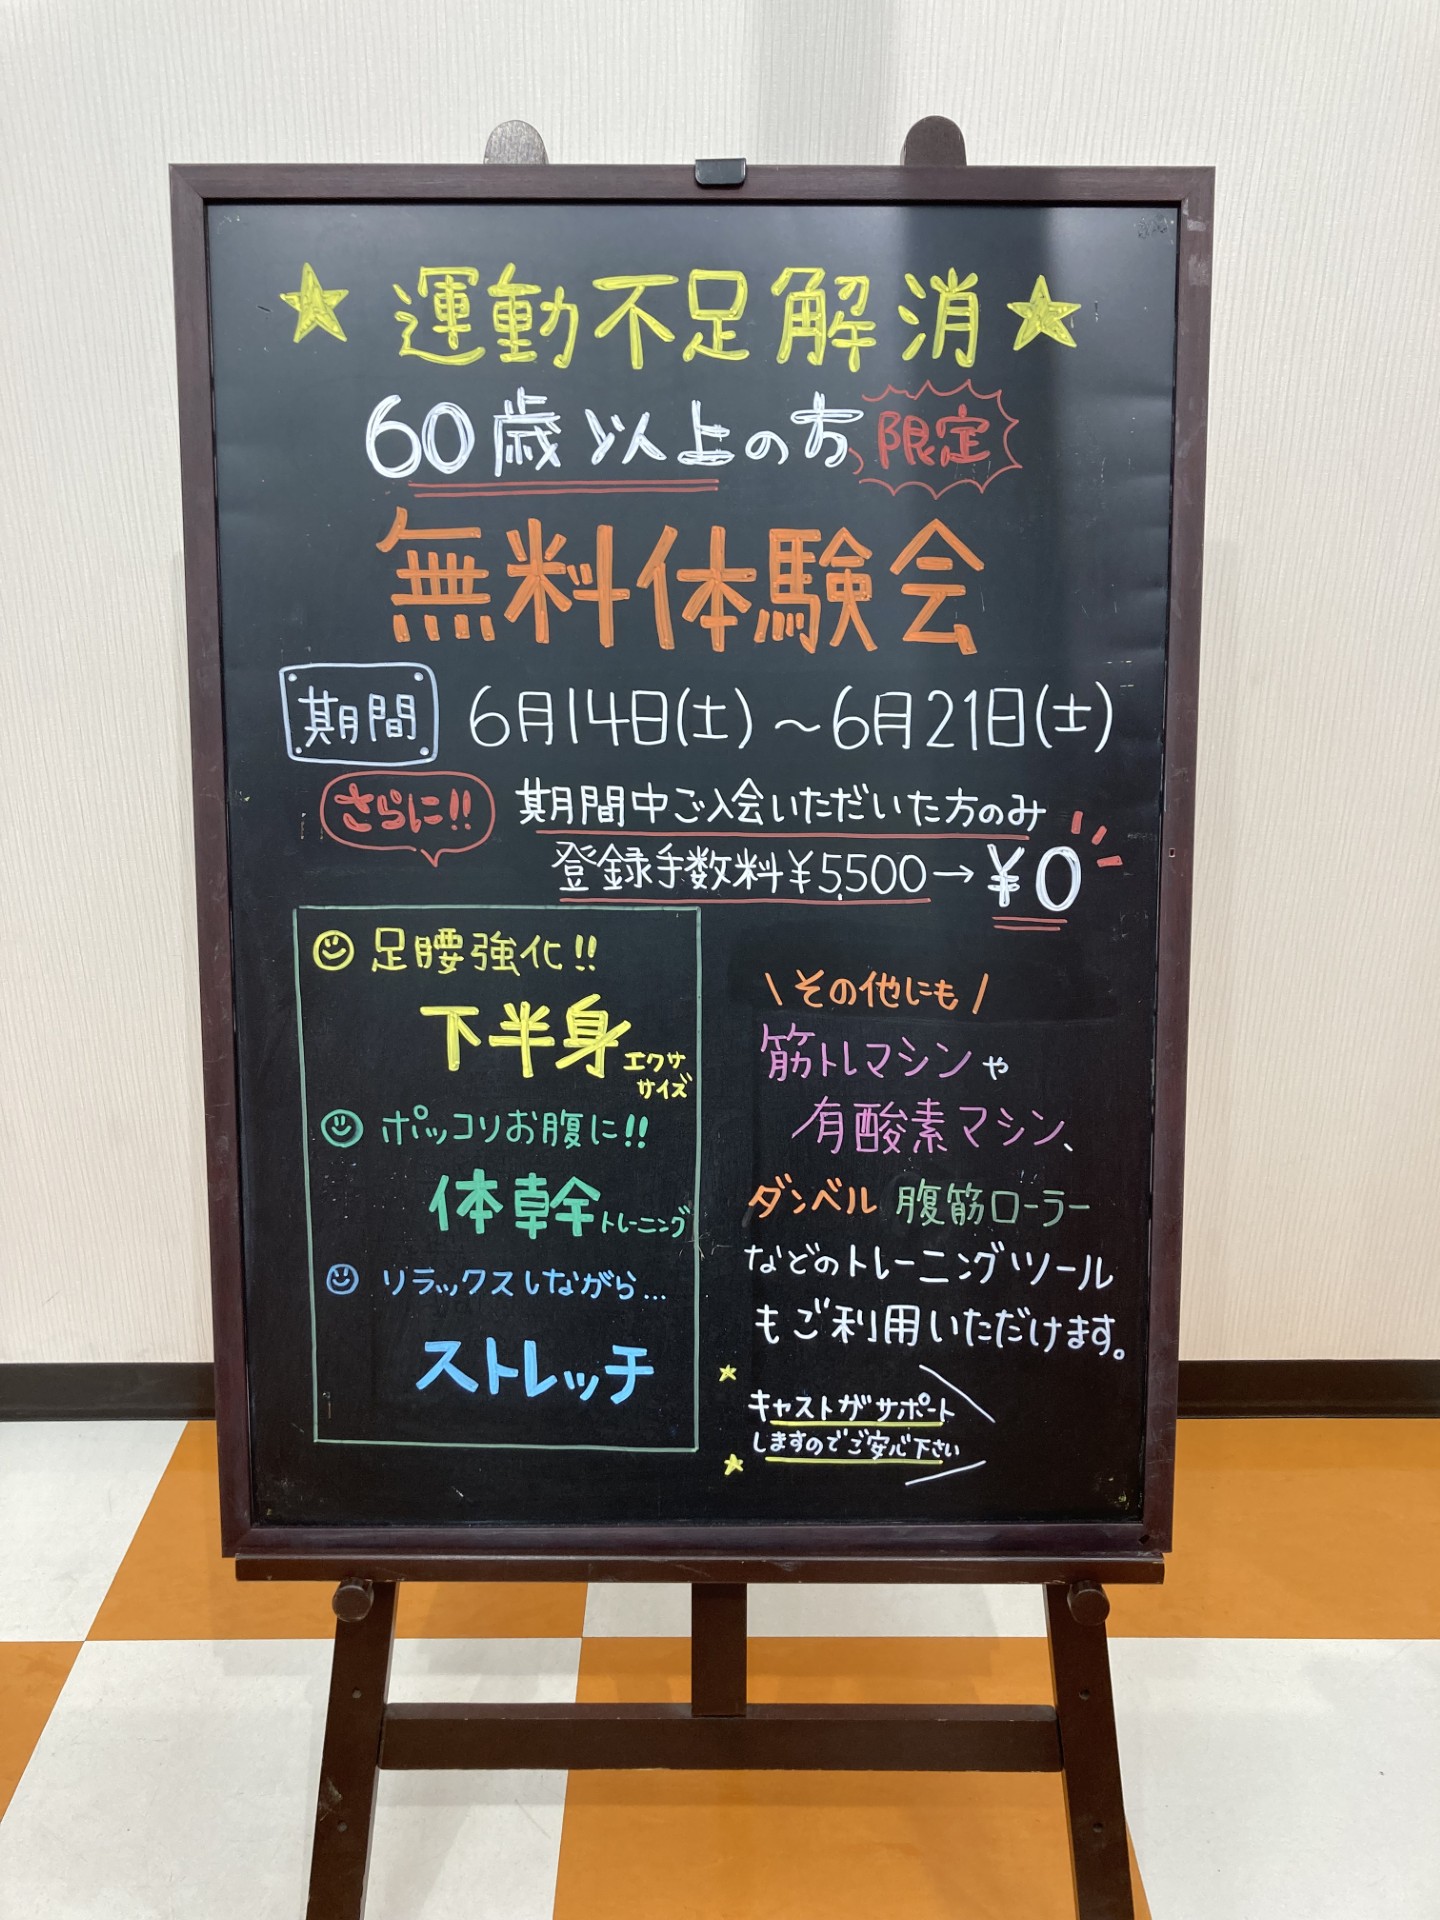 ★運動不足解消★
60歳以上の方 限定
無料体験会
期間 6月14日(土)～6月21日(土)
さらに!! 期間中ご入会いただいた方のみ
登録手数料¥5,500→¥0
足腰強化!!
下半身エクササイズ
ポッコリお腹に!!
体幹トレーニング
リラックスしながら…
ストレッチ
\その他にも/
筋トレマシンや
有酸素マシン、
ダンベル 腹筋ローラー
などのトレーニングツール
もご利用いただけます。
キャストがサポート
しますのでご安心下さい